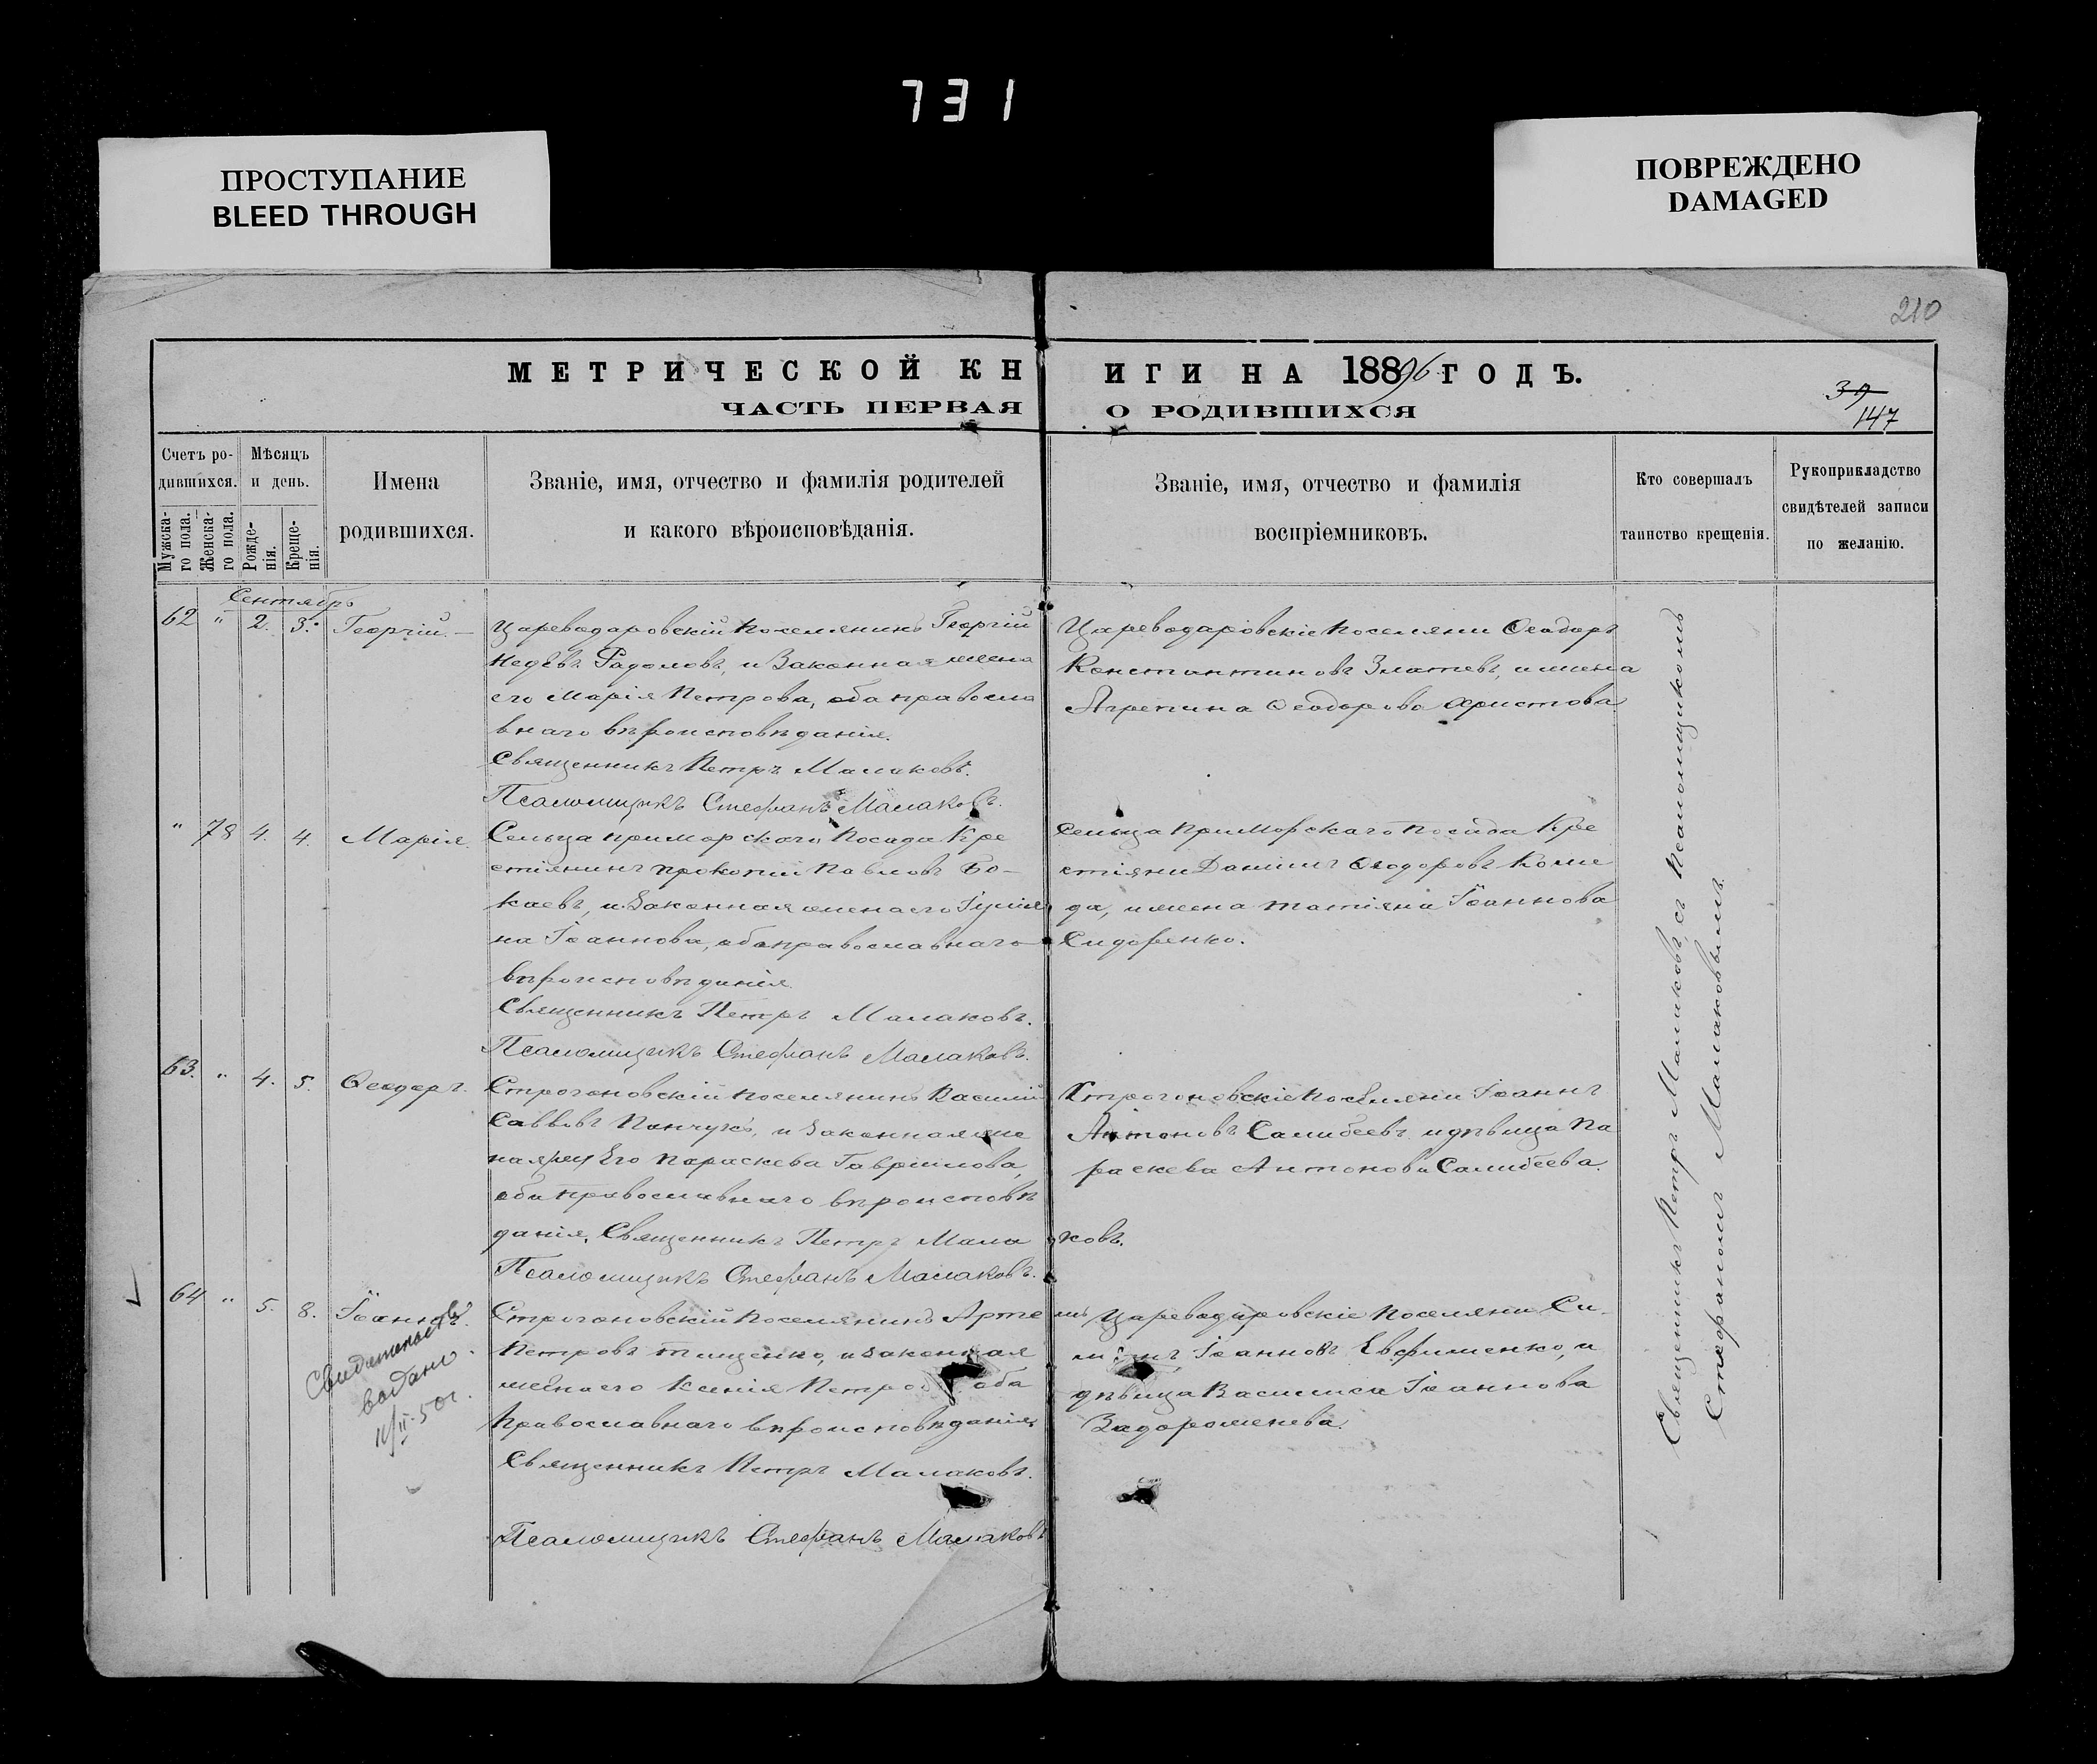 731
ПРОСТУПАНИЕ
BLEED THROUGH
ПОВРЕЖДЕНО
DAMAGED
210
МЕТРИЧЕСКОЙ КНИГИ НА 1896 ГОДЪ.
ЧАСТЬ ПЕРВАЯ О РОДИВШИХСЯ
39
147
Счетъ ро-
дившихся.
Мужска-
го пола.
Женска-
го пола.
Мѣсяцъ
и день.
Рожде-
нія.
Креще-
нія.
Имена
родившихся.
Званіе, имя, отчество и фамилія родителей
и какого вѣроисповѣданія.
Званіе, имя, отчество и фамилія
воспріемниковъ.
Кто совершалъ
таинство крещенія.
Рукоприкладство
свидѣтелей записи
по желанію.
Сентябрь
62 " 2. 3. Георгій.
Цареводаровскій поселянинъ Георгій
Недѣвъ Радоловъ, и законная жена
его Марія Петрова, оба правосла
внаго вѣроисповѣданія.
Священникъ Петръ Малаковъ.
Псаломщикъ Стефанъ Малаковъ.
Цареводаровскіе поселяни Ѳеодоръ
Константиновъ Златевъ, и жена
Агрепина Ѳеодорова Христова.
" 78 4. 4. Марія.
Сельца приморскаго Посада Кре
стіянинъ Прокопій Павловъ Бо-
каевъ, и законная жена его Іуліа
на Іоаннова, оба православнаго
вѣроисповѣданія.
Священникъ Петръ Малаковъ.
Псаломщикъ Стефанъ Малаковъ.
Сельца Приморскаго посада Кре
стіяни Даніилъ Ѳеодоровъ Коле
да, и жена Татіяна Іоаннова
Сидоренко.
63. " 4. 5. Ѳеодоръ.
Строгоновскій поселянинъ Василій
Саввовъ Панчукъ, и законная же
на его Параскева Гаврилова,
оба православнаго вѣроисповѣ
данія. Священникъ Петръ Малаковъ.
Псаломщикъ Стефанъ Малаковъ.
Строгоновскіе поселяни Іоаннъ
Антоновъ Самибеевъ и дѣвица Па
раскева Антонова Самибеева.
64 " 5. 8. Іоаннъ.
Свидетельство
выдано
11/II-50г.
Строгоновскій поселянинъ Арте
мъ Петровъ Тищенко, и законная
жена его Ксенія Петрова оба
православнаго вѣроисповѣданія.
Священникъ Петръ Малаковъ.
Псаломщикъ Стефанъ Малаковъ
Цареводаровскіе поселяни Си-
меонъ Іоанновъ Евфименко, и
дѣвица Василиса Іоаннова
Задорожнева.
Священникъ Петръ Малаковъ, съ Псаломщикомъ
Стефаномъ Малаковымъ.